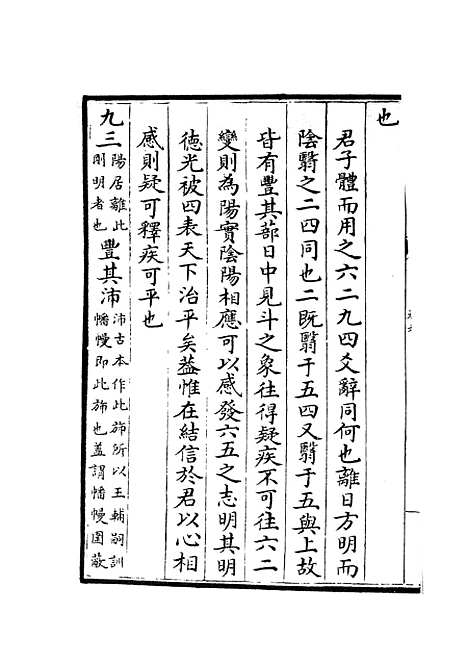 也
君子體而用之六二九四爻辭同何也離日方明而
陰翳之二四同也二既翳于五四又翳于五與上故
皆有豐其蔀日中見斗之象往得疑疾不可往六二
變則為陽實陰陽相應可以感發六五之志明其明
徳光被四表天下治平矣葢惟在結信於君以心相
感則疑可釋疾可平也
九三陽居離此剛明者也豐其沛沛古本作此斾所以王輔嗣訓幡幔即此斾也盖謂幡幔圍蔽